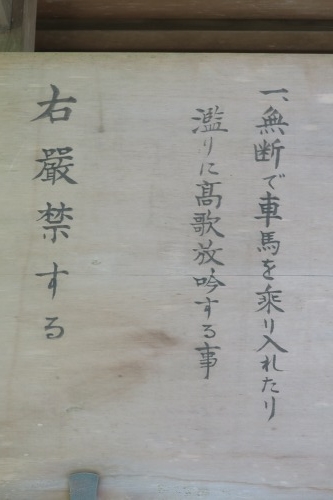 一、無断で車馬を乗り入れたり
濫りに髙歌放吟する事
右嚴禁する